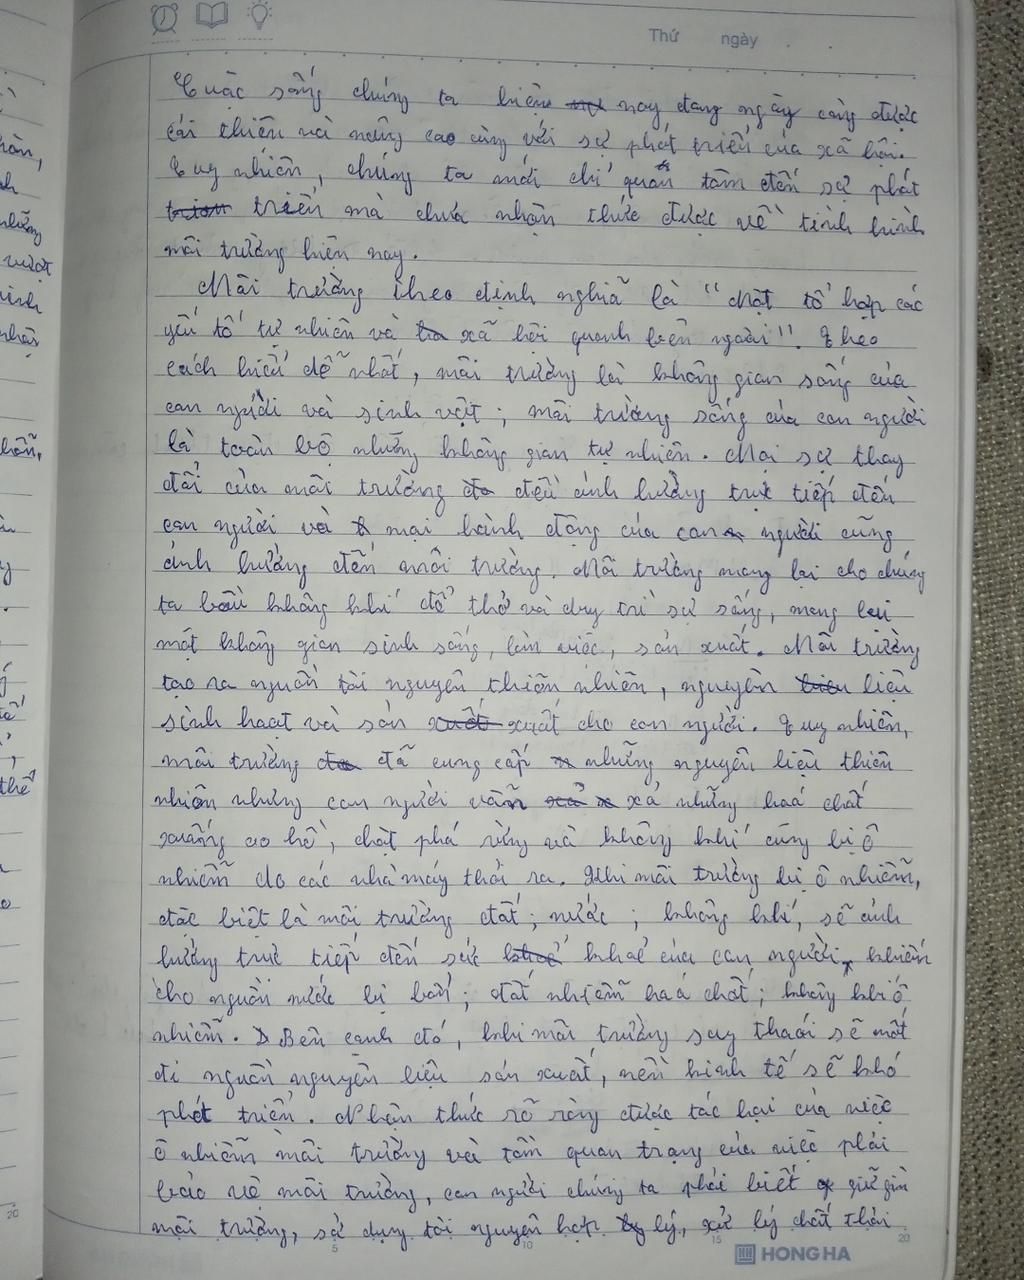 Thứ ngày
Cuộc sống chúng ta hiện nay đang ngày càng được
cải thiện và nâng cao cùng với sự phát triển của xã hội.
Tuy nhiên, chúng ta mới chỉ quan tâm đến sự phát
triển mà chưa nhận thức được về tình hình
môi trường hiện nay.
Môi trường theo định nghĩa là "một tổ hợp các
yếu tố tự nhiên và xã hội quanh bên ngoài". Theo
cách hiểu dễ nhất, môi trường là không gian sống của
con người và sinh vật; môi trường sống của con người
là toàn bộ những không gian tự nhiên. Mọi sự thay
đổi của môi trường đều ảnh hưởng trực tiếp đến
con người và mọi hành động của con người cũng
ảnh hưởng đến môi trường. Môi trường mang lại cho chúng
ta bầu không khí để thở và duy trì sự sống, mang lại
một không gian sinh sống, làm việc, sản xuất. Môi trường
tạo ra nguồn tài nguyên thiên nhiên, nguyên liệu
sinh hoạt và sản xuất cho con người. Tuy nhiên,
môi trường đã cung cấp những nguyên liệu thiên
nhiên nhưng con người vẫn xả những hoá chất
xuống ao hồ, chặt phá rừng và không khí cũng bị ô
nhiễm do các nhà máy thải ra. Khi môi trường bị ô nhiễm,
đặc biệt là môi trường đất; nước; không khí, sẽ ảnh
hưởng trực tiếp đến sức khoẻ của con người, khiến
cho nguồn nước bị bẩn; đất nhiễm hoá chất; không khí ô
nhiễm. Bên cạnh đó, khi môi trường suy thoái sẽ mất
đi nguồn nguyên liệu sản xuất, nền kinh tế sẽ khó
phát triển. Nhận thức rõ ràng được tác hại của việc
ô nhiễm môi trường và tầm quan trọng của việc phải
bảo vệ môi trường, con người chúng ta phải biết giữ gìn
môi trường, sử dụng tài nguyên hợp lý, xử lý chất thải
5 10 15 20
HONG HA